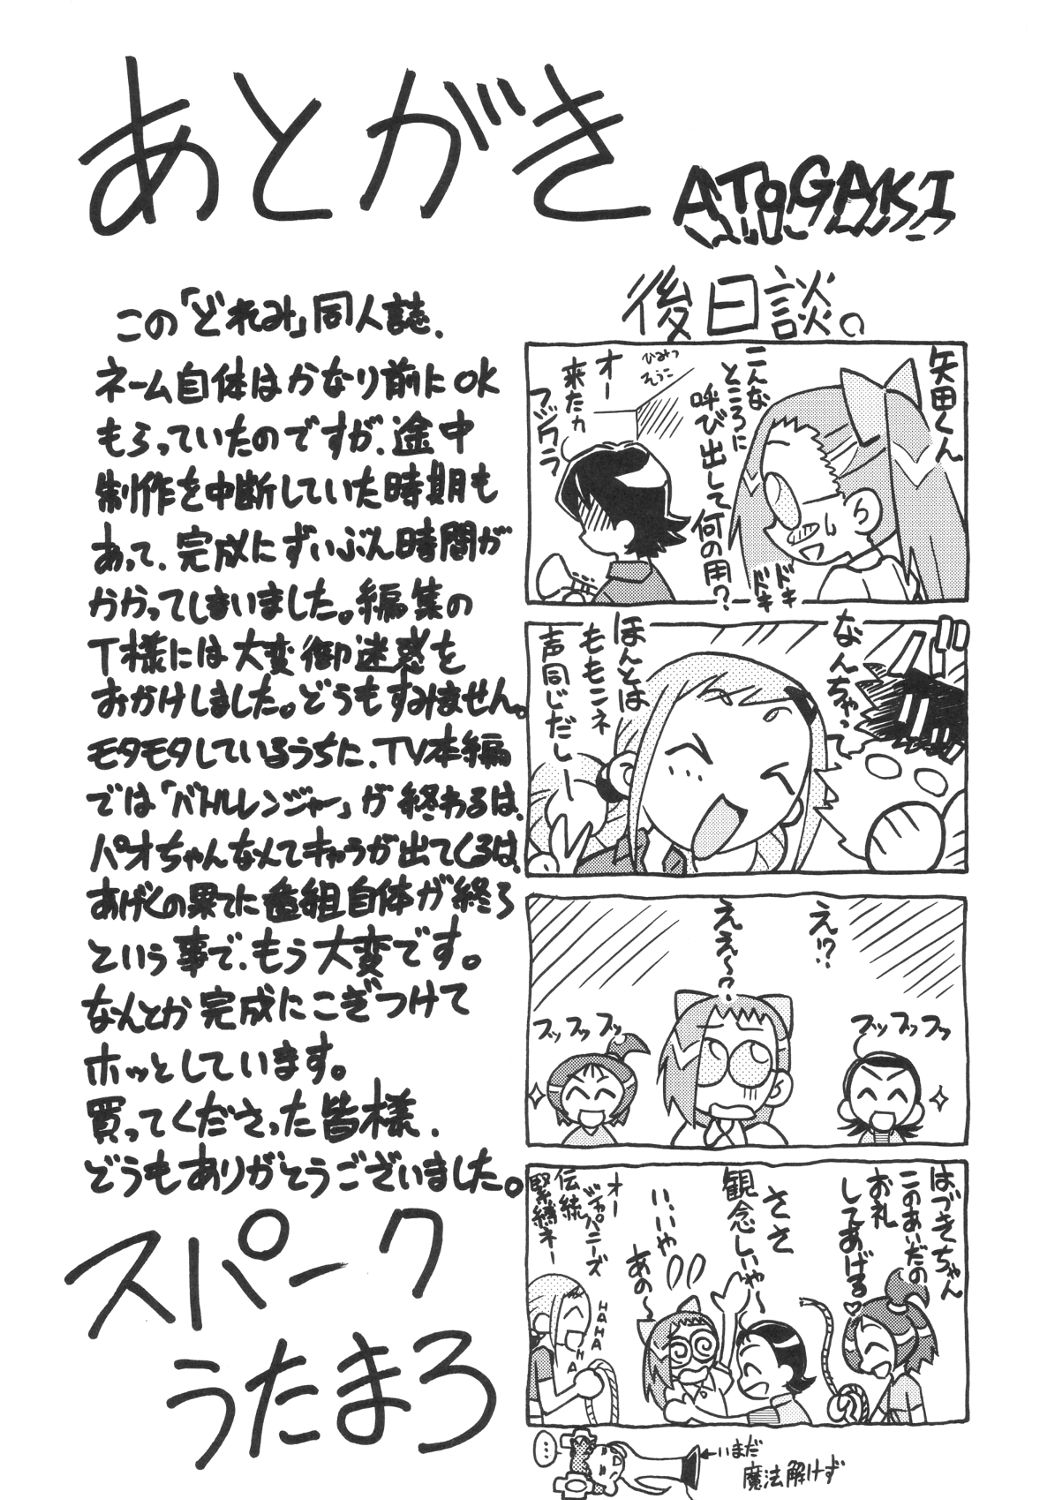 あとがき
ATOGAKI
この「どれみ」同人誌、
ネーム自体はかなり前にOK
もらっていたのですが、途中
制作を中断していた時期も
あって、完成にずいぶん時間が
かかってしまいました。編集の
T様には大変御迷惑を
おかけしました。どうもすみません。
モタモタしているうちに、TV本編
では「バトルレンジャー」が終わるは、
パオちゃんなんてキャラが出てくるは、
あげくの果てに番組自体が終る
という事で、もう大変です。
なんとか完成にこぎつけて
ホッとしています。
買ってくださった皆様、
どうもありがとうございました。
スパーク
うたまろ
後日談。
矢田くん
こんな
ところに
呼び出して何の用?
ドキ
ドキ
ひみつ
そうこ
オー
来たカ
なんちゃっ
ほんとは
ももこネ
声同じだしー
え!?
ええ〜っ
プップップッ
プップップッ
はづきちゃん
このあいだの
お礼
してあげる
ささ
観念しいや〜
いいや
あの〜
オー
ジャパニーズ
伝統
緊縛ネー
HAHA
HAHA
…
←いまだ
魔法解けず